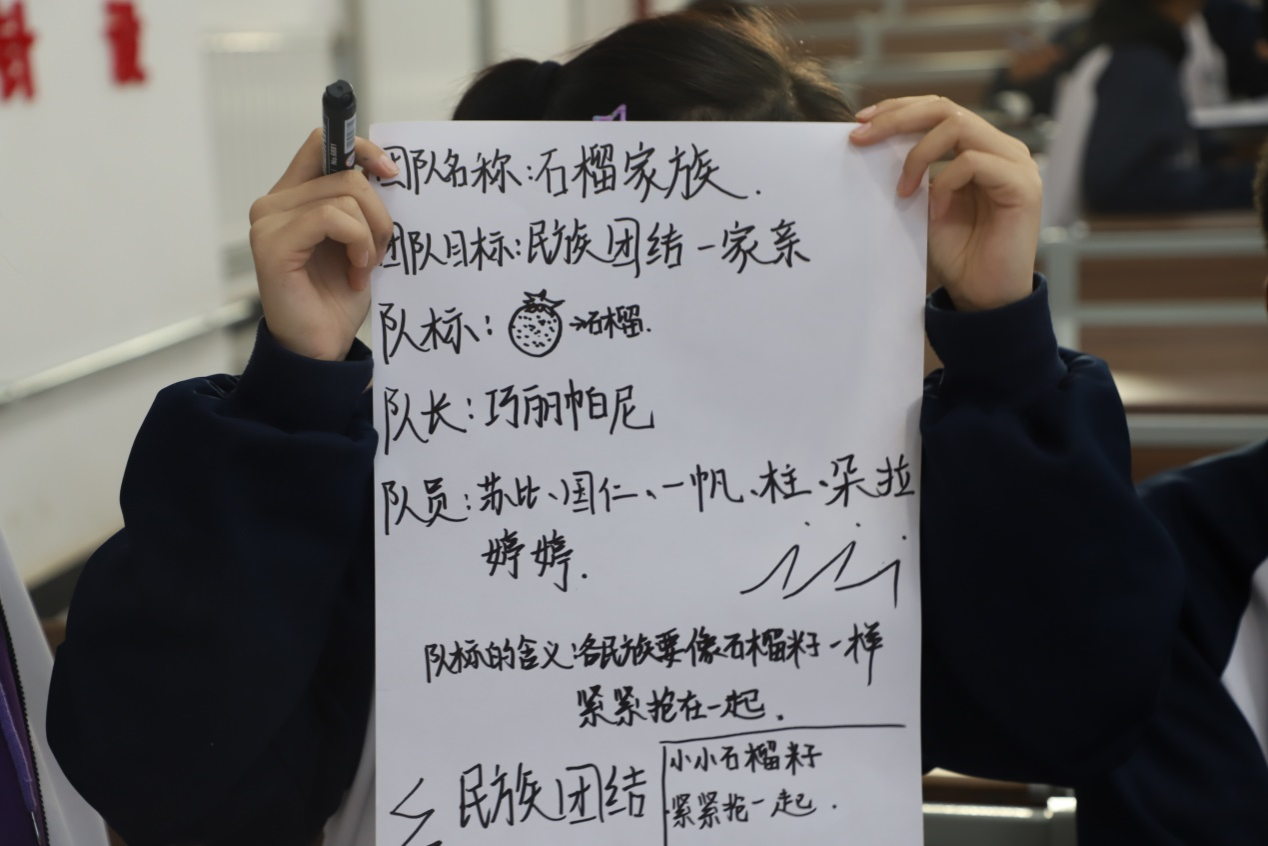 团队名称:石榴家族.
团队目标:民族团结一家亲
队标:→石榴.
队长:巧丽帕尼
队员:苏比、国仁、一帆、柱、朵拉
婷婷.
队标的含义:各民族要像石榴籽一样
紧紧抱在一起.
民族团结
小小石榴籽
紧紧抱一起.